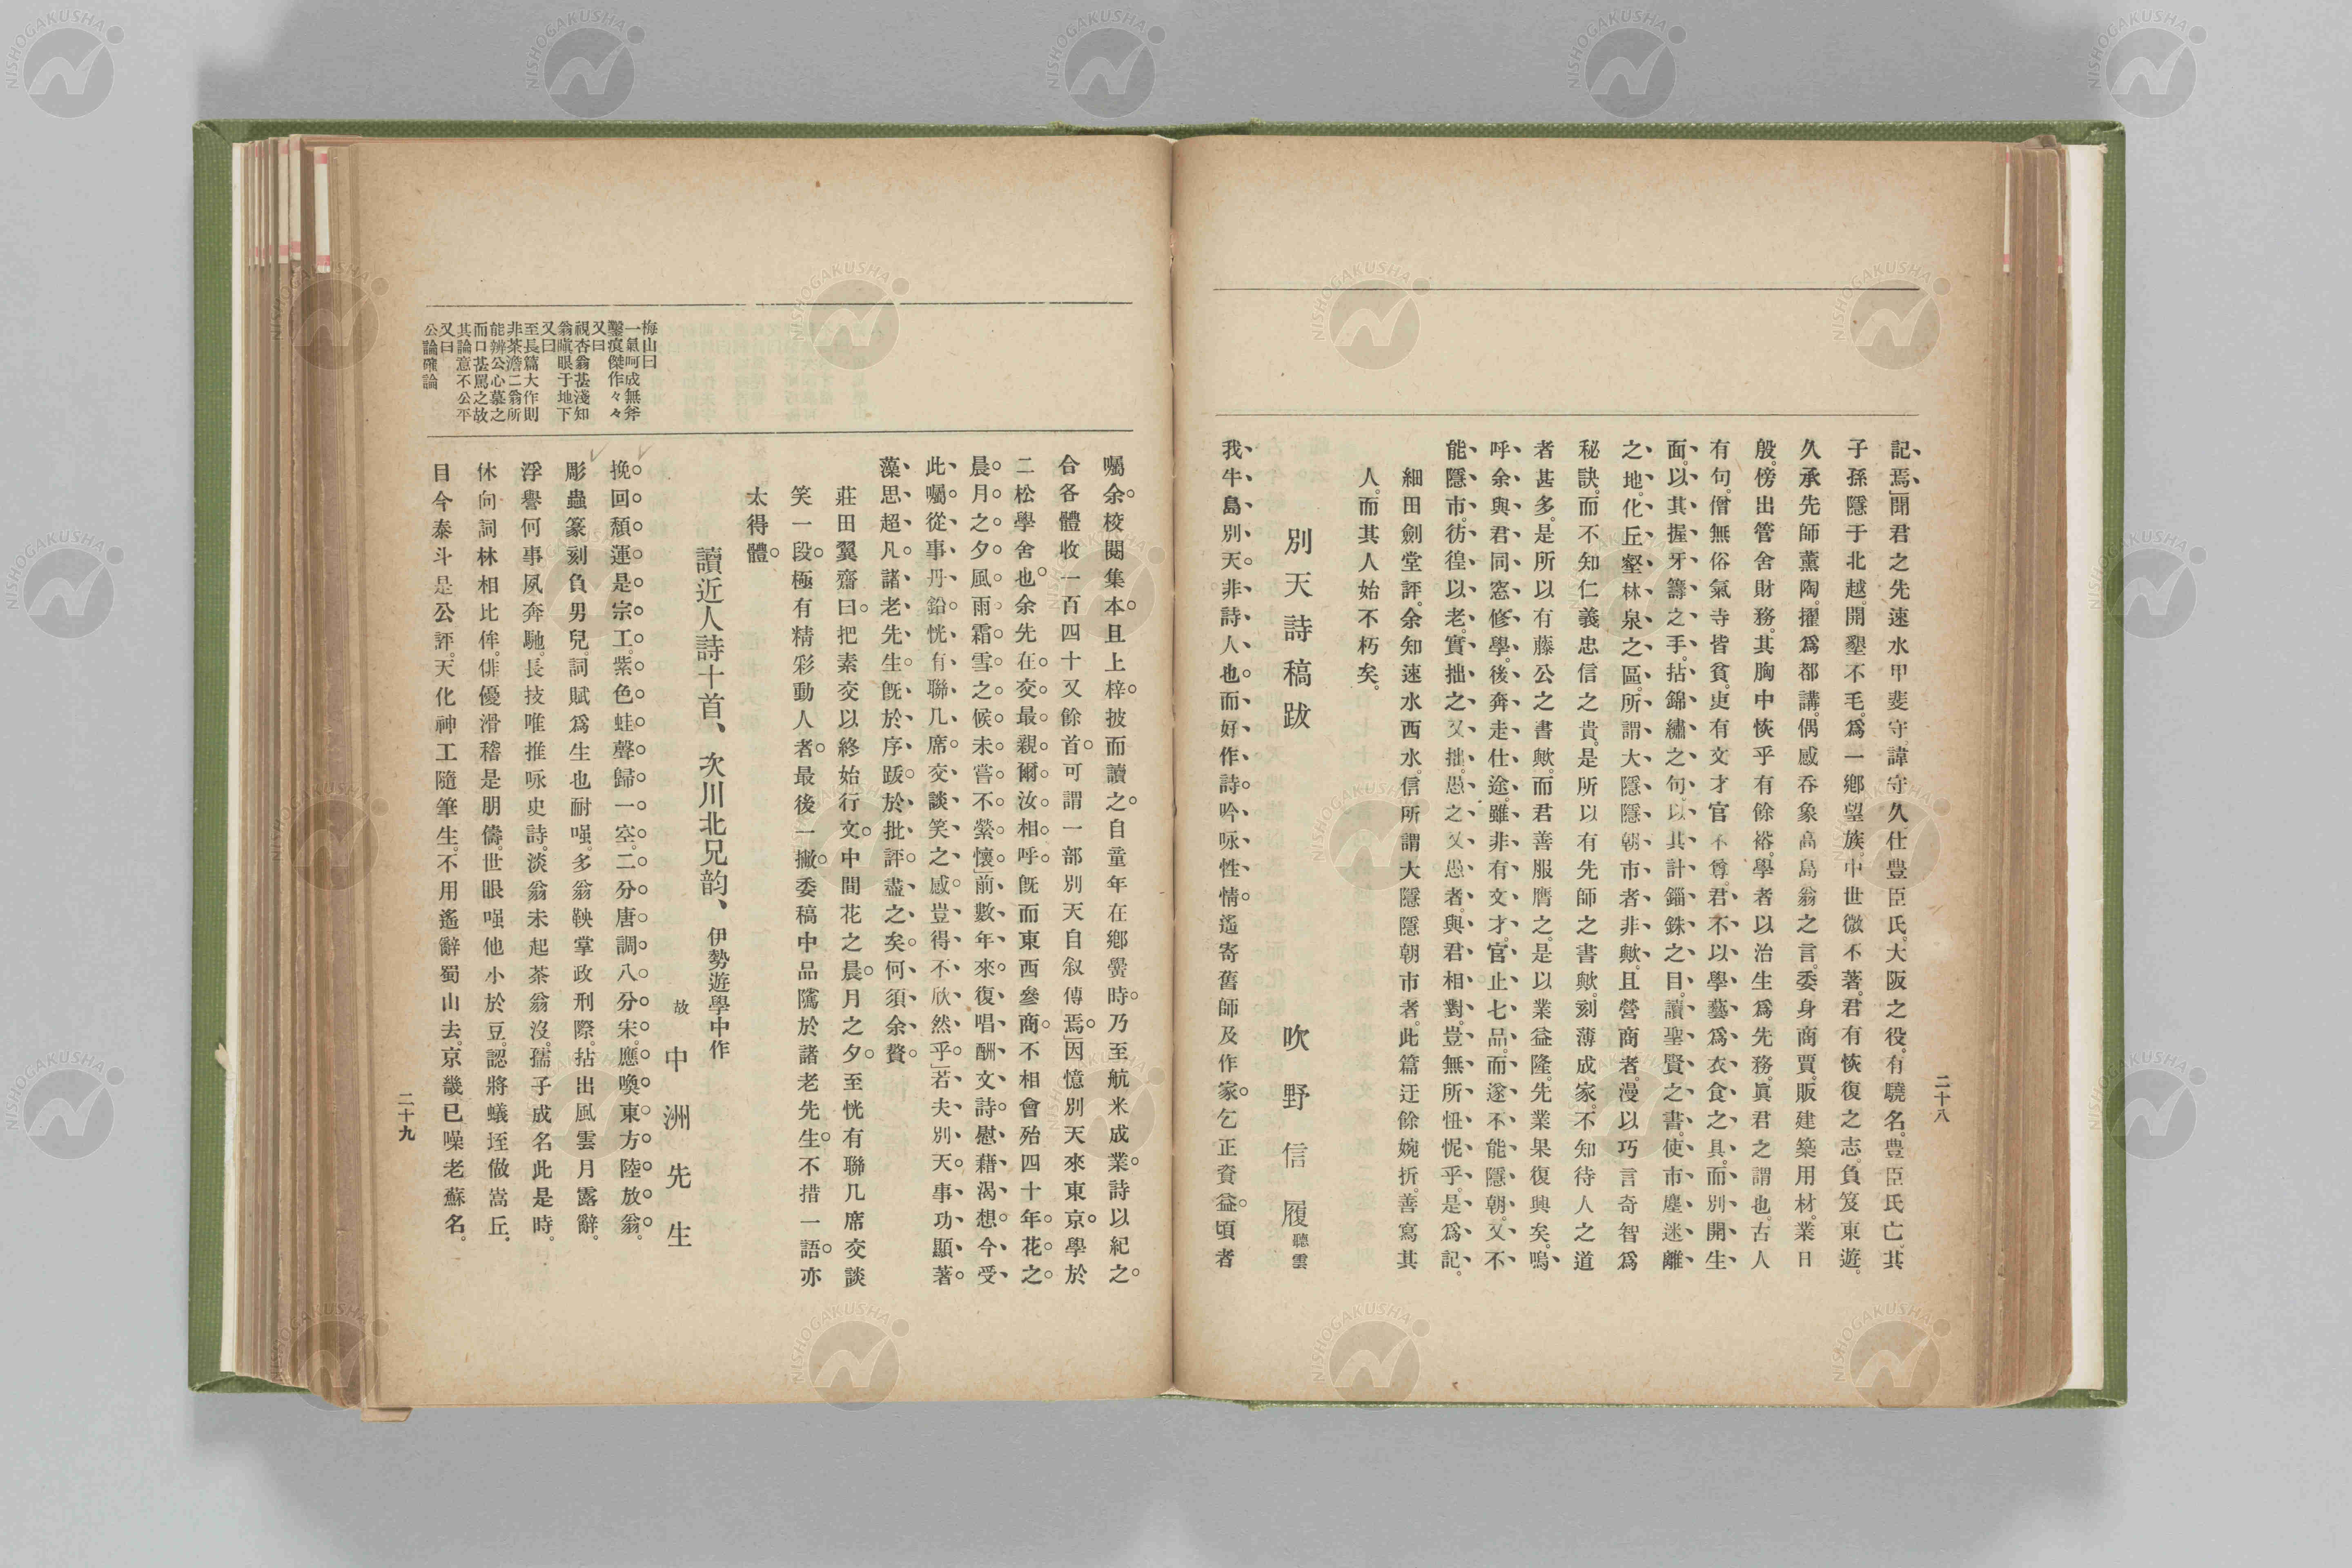 二十八
記焉」聞君之先速水甲斐守諱守久仕豊臣氏。大阪之役。有驍名。豊臣氏亡。其
子孫隱于北越。開墾不毛。爲一鄕望族。中世微不著。君有恢復之志。負笈東遊。
久承先師薫陶。擢爲都講。偶感呑象高島翁之言。委身商賈。販建築用材。業日
殷。傍出管舍財務。其胸中恢乎有餘裕。學者以治生爲先務。眞君之謂也。古人
有句。僧無俗氣寺皆貧。吏有文才官不尊。君不以學藝爲衣食之具。而別開生
面。以其握牙籌之手。拈錦繡之句。以其計錙銖之目。讀聖賢之書。使市塵迷離
之地。化丘壑林泉之區。所謂大隱隱朝市者非歟。且營商者。漫以巧言奇智爲
秘訣。而不知仁義忠信之貴。是所以有先師之書歟。刻薄成家。不知待人之道
者甚多。是所以有藤公之書歟。而君善服膺之。是以業益隆。先業果復興矣。嗚
呼余與君同窓修學。後奔走仕途。雖非有文才。官止七品。而遂不能隱朝。又不
能隱市。彷徨以老。實拙之又拙。愚之又愚者。與君相對。豈無所忸怩乎。是爲記。
細田劍堂評。余知速水西水。信所謂大隱隱朝市者。此篇迂餘婉折。善寫其
人。而其人始不朽矣。
別天詩稿跋
吹野信履 聽雲
我牛島別天。非詩人也。而好作詩。吟咏性情。遙寄舊師及作家。乞正資益。頃者
囑余校閲集本且上梓。披而讀之。自童年在鄕黌時。乃至航米成業。詩以紀之。
合各體收一百四十又餘首。可謂一部別天自叙傳焉」因憶別天來東京。學於
二松學舍也。余先在。交最親。爾汝相呼。既而東西參商。不相會殆四十年。花之
晨。月之夕。風雨霜雪之候。未嘗不縈懷」前數年來。復唱酬文詩。慰藉渴想。今受
此囑。從事丹鉛。恍有聯几席交談笑之感。豈得不欣然乎」若夫別天事功顯著。
藻思超凡。諸老先生。旣於序跋。於批評。盡之矣。何須余贅。
莊田翼齋曰。把素交以終始行文。中間花之晨月之夕。至恍有聯几席交談
笑一段。極有精彩動人者。最後一撇。委稿中品隲於諸老先生。不措一語。亦
太得體。
讀近人詩十首、次川北兄韵、伊勢遊學中作
故 中洲先生
挽回頹運是宗工。紫色蛙聲歸一空。二分唐調八分宋。應喚東方陸放翁。
彫蟲篆刻負男兒。詞賦爲生也耐嗤。多翁鞅掌政刑際。拈出風雲月露辭。
浮譽何事夙奔馳。長技唯推咏史詩。淡翁未起茶翁沒。孺子成名此是時。
休向詞林相比侔。俳優滑稽是朋儔。世眼嗤他小於豆。認將蟻垤做嵩丘。
目今泰斗是公評。天化神工隨筆生。不用遙辭蜀山去。京畿已噪老蘇名。
梅山曰
一氣呵成無斧
鑿痕傑作々々
又曰
視杏翁甚淺知
翁瞋眼于地下
又曰
至長篇大作則
非茶澹二翁所
能辨公心慕之
而口甚罵之故
其論意不公平
又曰
公論確論
二十九